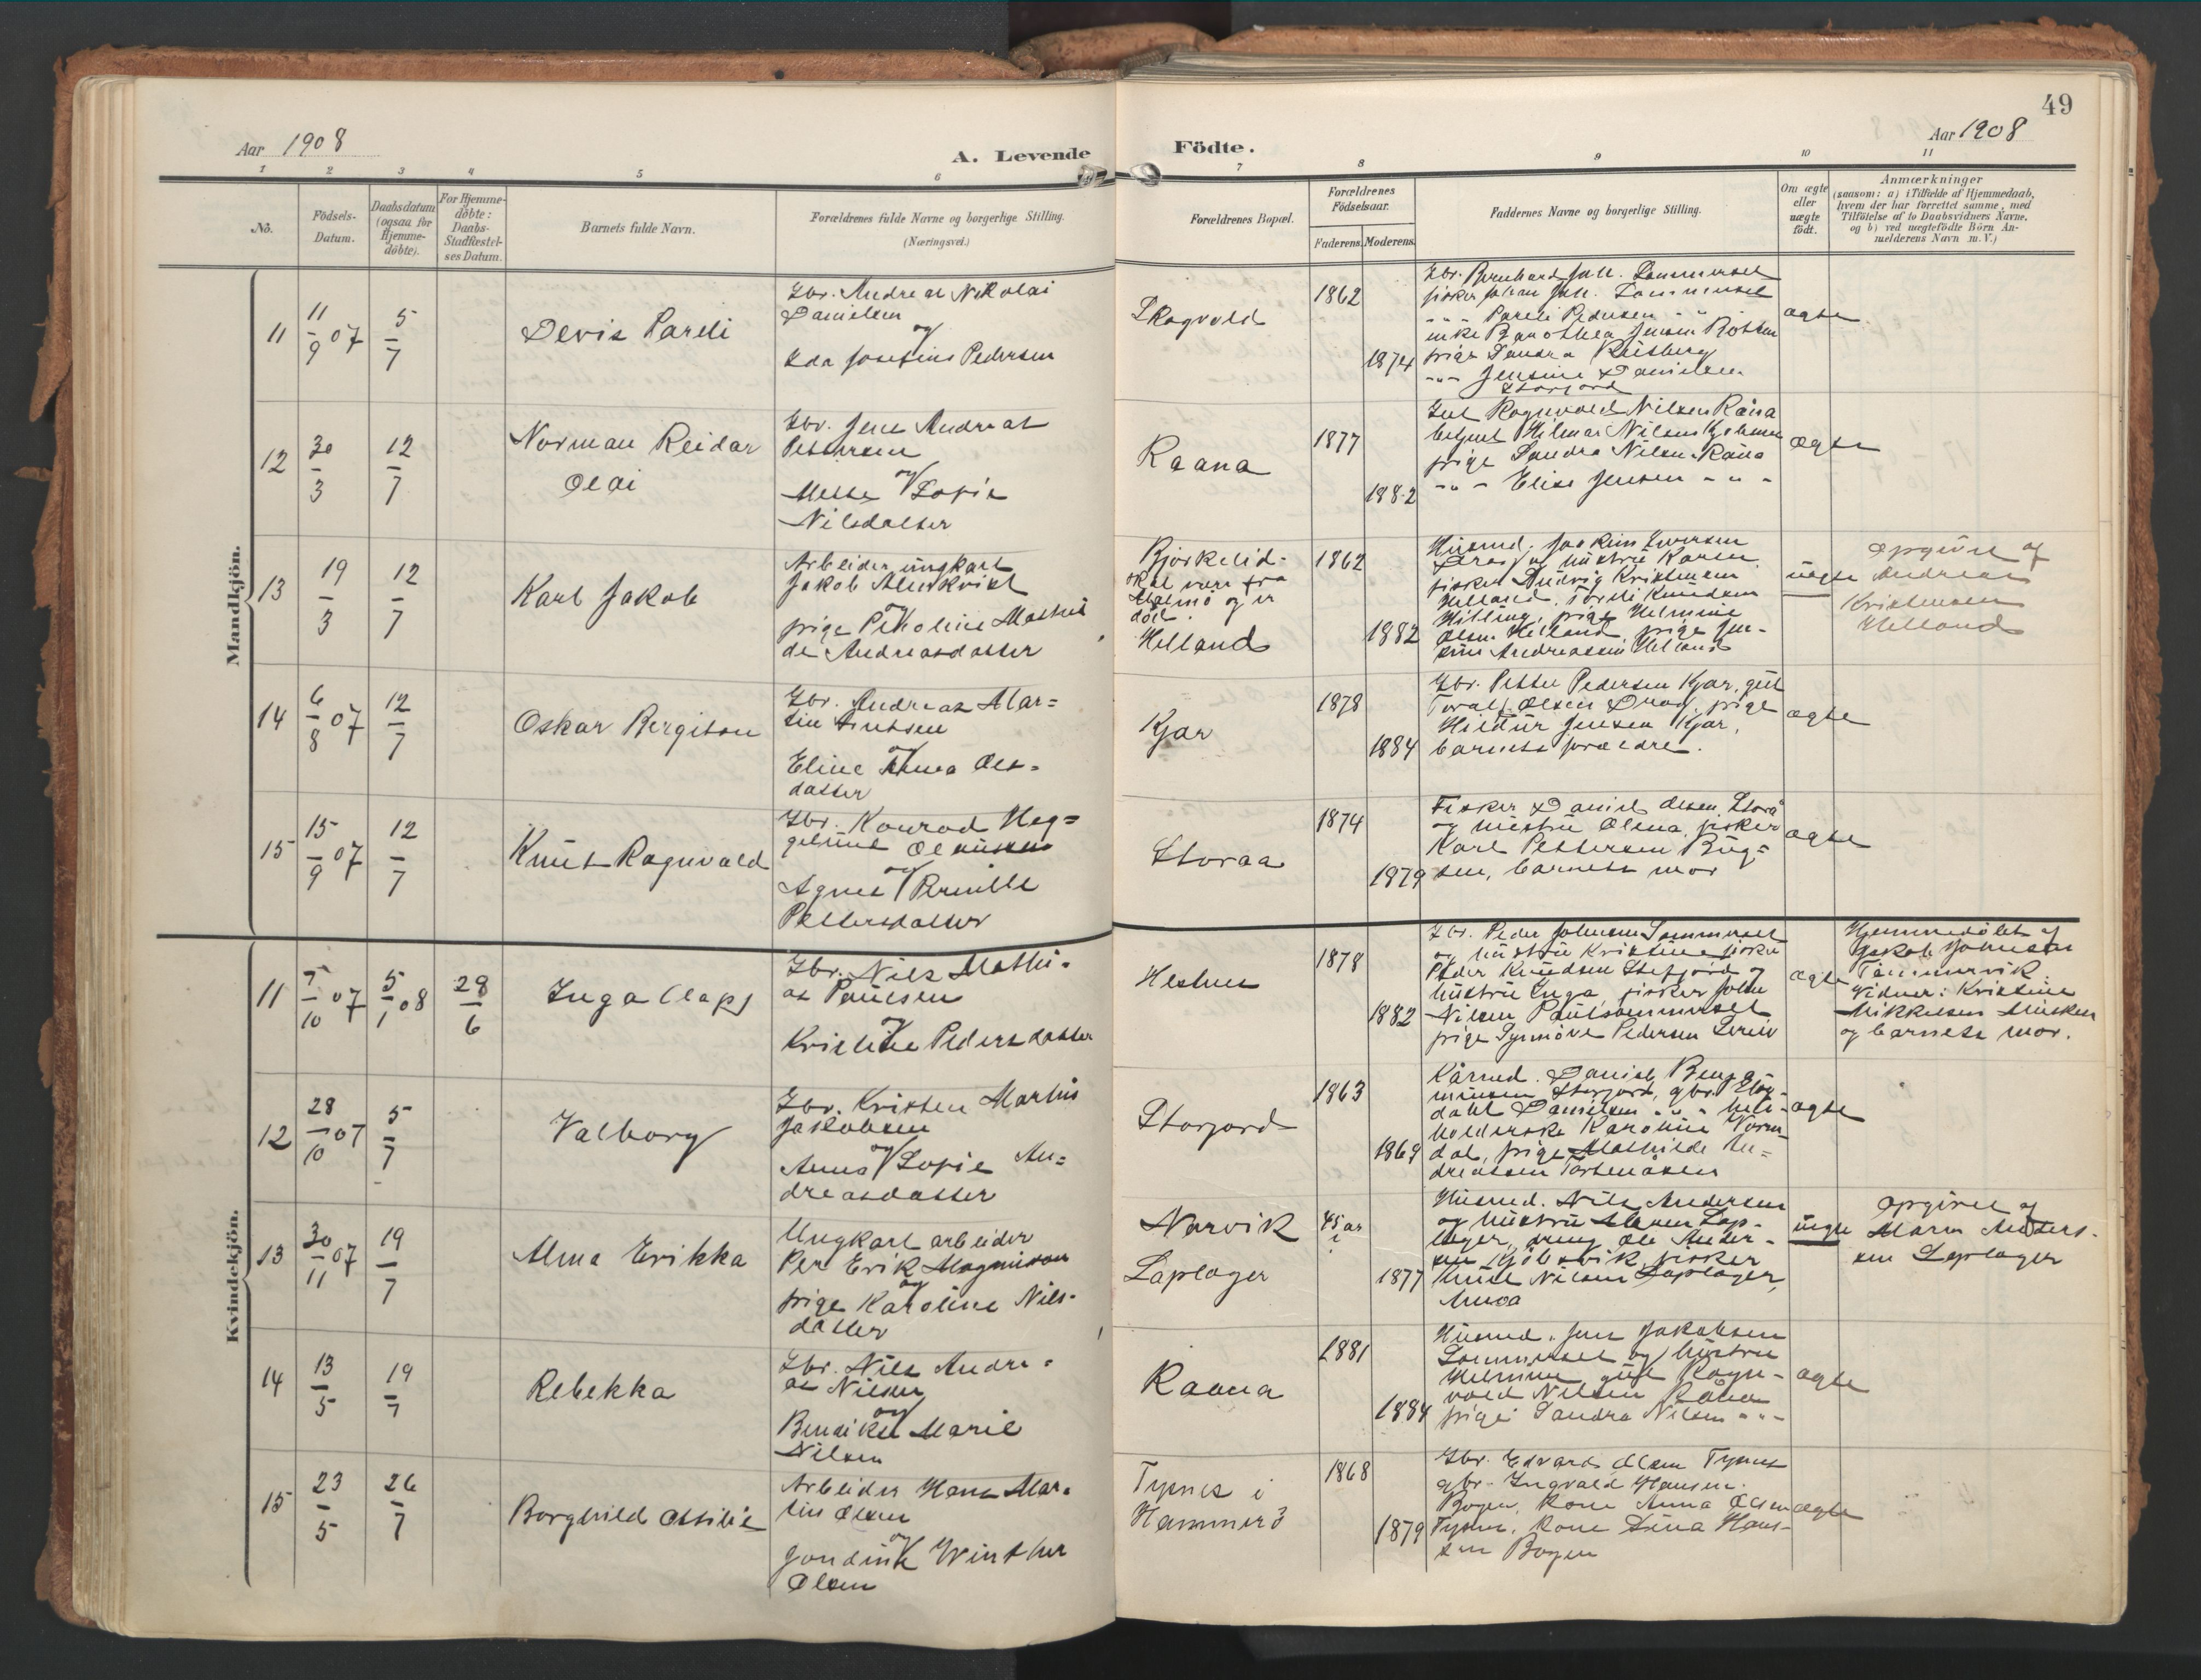 49
Aar 1908
A. Levende
Födte.
Aar 1908
1 2 3 4 5 6 7 8 9 10 11
No.
Födsels-
Datum.
Daabsdatum
(ogsaa for
Hjemme-
döbte).
For Hjemme-
döbte:
Daabs-
Stadfæstel-
ses Datum.
Barnets fulde Navn.
Forældrenes fulde Navne og borgerlige Stilling.
(Næringsvei.)
Forældrenes Bopæl.
Forældrenes
Födselsaar.
Faderens. Moderens.
Faddernes Navne og borgerlige Stilling.
Om ægte
eller
uægte
födt.
Anmærkninger
(saasom: a) i Tilfælde af Hjemmedaab,
hvem der har forrettet samme, med
Tilföielse af to Daabsvidners Navne.
og b) ved uægtefödte Börn An-
melderens Navn m. V.)
Mandkjön.
11
11/9 07
5/7
Devis Pareli
Gbr. Andreas Nikolai
Danielsen
og
Ida Josefine Pedersen
Skogvold
1862
1874
fisker Johan Joh.
Pareli Pedersen
pige Sandra
Jensine Danielsen
Storjord
ægte
12
30/3
12/7
Norman Reidar
Olai
Gbr. Jens Andreas
Pettersen
og
Sofie
Nilsdatter
Raana
1877
1882
Gut Rognvald Nilsen Råna
Hilmar Nilsen
pige Sandra Nilsen Råna
-"- Elise Jensen -"-
ægte
13
19/3
12/7
Karl Jakob
Arbeider ungkarl
Jakob Almkvist
og
pige Petroline Mathil
de Andreasdatter
Bjørkelid -
skal være fra
Malmö og er
død.
Helland
1862
1882
Husmd. Joakim Iversen
og hustru Karen,
fisker Ludvig Kristensen
Helland, Knudsen
pige Helmine
Olsen Helland, pige Jen-
sine Andreassen Helland
uægte
opgivet af
Andreas
Kristensen
Helland
14
6/8 07
12/7
Oskar Bergiton
Gbr. Andreas Mar=
tin Arntsen
og
Eline Anna Ols=
datter
Kjær
1878
1884
Gbr. Petter Pedersen Kjær, gut
Toralf Olsen Drag, pige
Hildur Jensen Kjær,
barnets forældre.
ægte
15
15/9 07
12/7
Knut Ragnvald
Gbr. Konrad Heg=
gelund
og
Agnes Pernille
Pettersdatter
Storaa
1874
1879
Fisker Daniel Olsen Storå
og hustru Olena, fisker
Karl Pettersen Bug=
sen, barnets mor
ægte
Kvindekjön.
11
7/10 07
5/1 08
28/6
Inga
Gbr. Nils Mathi=
as Paulsen
og
Kristine Pedersdatter
Hesnes
1878
1882
Gbr. Peder Johnsen Sommerset
og hustru Kristine, fisker
Peder Knudsen Stefjord og
hustru Inga, fisker John
Nilsen
pige Synnöve Pedersen
ægte
Hjemmedøbt af
Jakob Johnsen
Tømmervik.
Vidner: Kristine
Mikkelsen Musken
og barnets mor.
12
28/10 07
5/7
Valborg
Gbr. Kristen Martin
Jakobsen
og
Anna Sofie An=
dreasdatter
Storjord
1863
1869
Kårmd. Daniel Benja-
minsen Storjord, gbr.
dahl Danielsen -"-
Karoline Norm-
dal, pige Mathilde An=
dreassen
ægte
13
30/11 07
19/7
Alma Erikka
Ungkarl arbeider
Per Erik Magnusson
og
pige Karoline Nils-
datter
Narvik
Laplager
45 år
1877
Husmd. Nils Andersen
og hustru Maren Lap-
lager, dreng Ole Ander-
sen Kjöbsvik, fisker
Knut Nilsen Laplager,
uægte
opgivet af
Maren Anders-
sen Laplager
14
13/5
19/7
Rebekka
Gbr. Nils Andre=
as Nilsen
og
Bendikte Marie
Nilsen
Raana
1881
1884
Husmd. Jens Jakobsen
Sommerset og hustru
Helmine, gut Rogn-
vald Nilsen Råna
pige Sandra Nilsen -"-
ægte
15
23/5
26/7
Borghild Ottilie
Arbeider Hans Mar=
tin Olsen
og
Winther
Olsen
Tysnes i
Hammerö
1868
1879
Gbr. Edvard Olsen Tysnes
gbr. Ingvald Hansen
Bogen, kone Anna Olsen
Tysnes, kone Lina Han-
sen Bogen
ægte